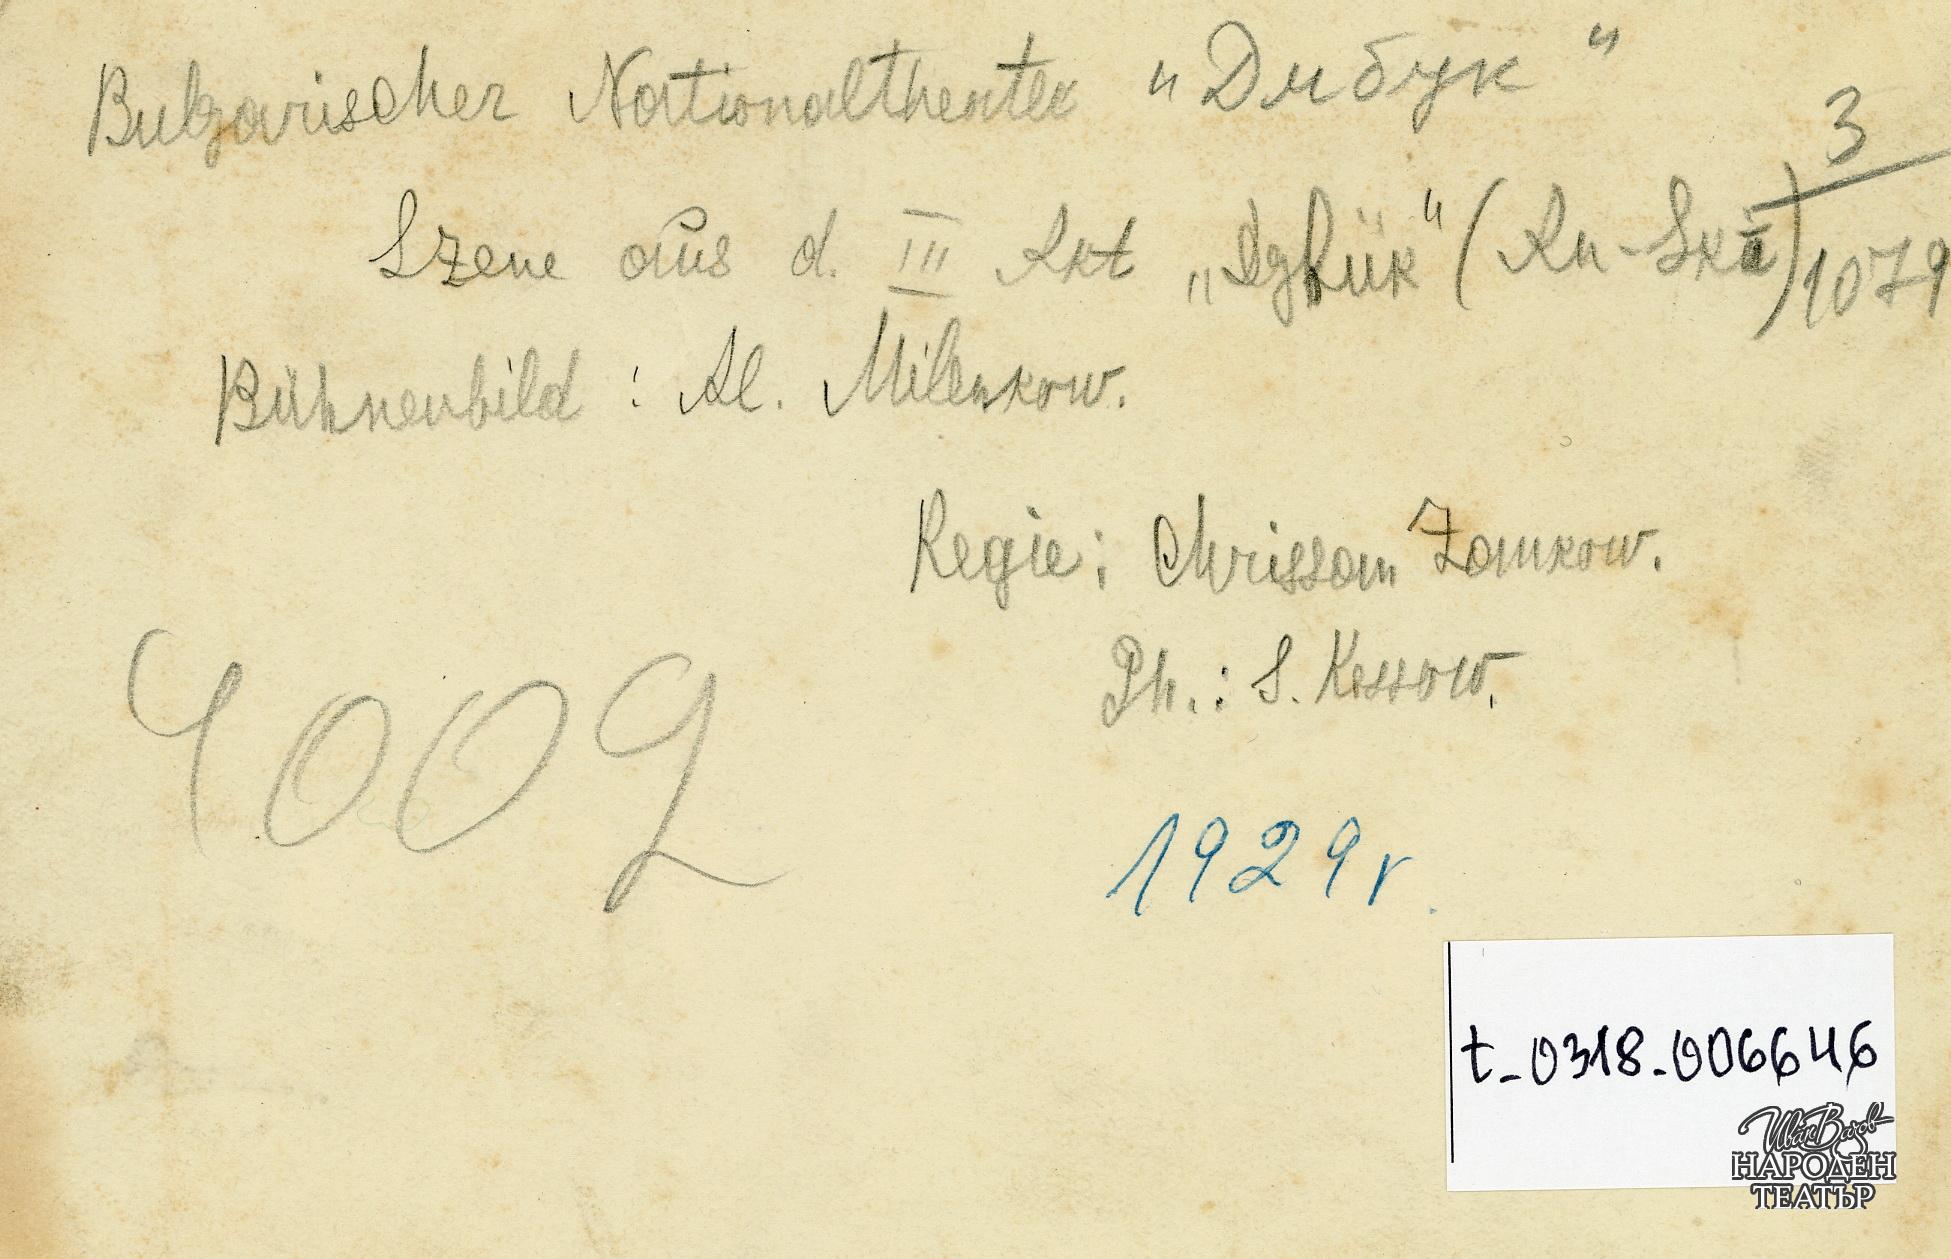 Bulgarischer Nationaltheater "Дибук"
3
Szene aus d. III Akt „Dybük" (An-Ski)
1079
Bühnenbild: Al. Milenkow.
Regie: Chrissan Zankow.
Ph.: S. Kessow.
4009
1929 г.
t_0318_006646
Иван Вазов
НАРОДЕН
ТЕАТЪР